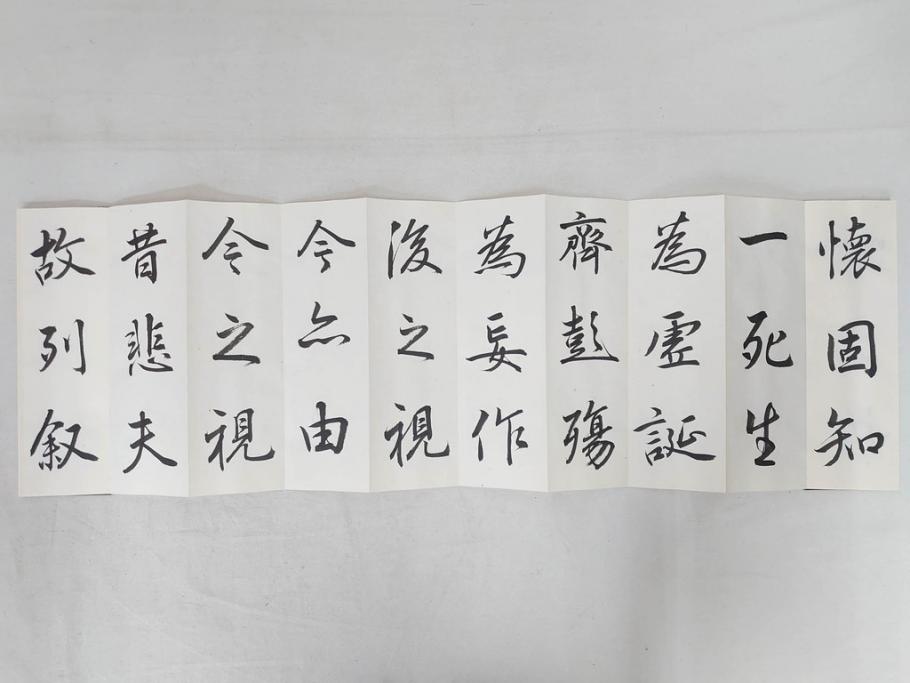 懐固知
一死生
為虛誕
齊彭殤
為妄作
後之視
今亦由
今之視
昔悲夫
故列叙